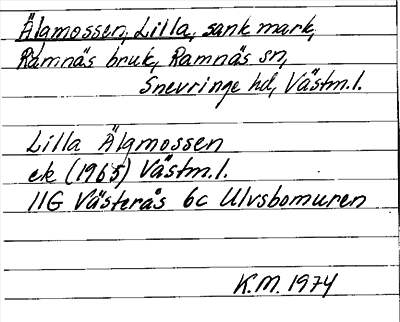 Älgmossen, Lilla, sank mark,
Ramnäs bruk, Ramnäs sn,
Snevringe hd, Västm.l.
Lilla Älgmossen
ek (1965) Västm.l.
11G Västerås 6c Ulvsbomuren
K.M. 1974